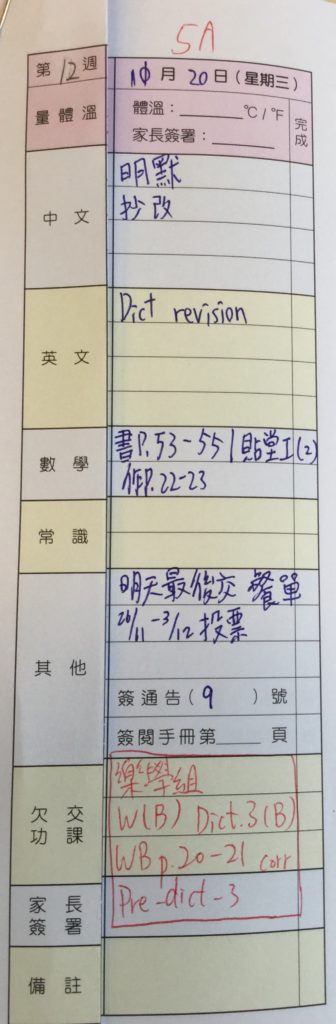 5A
第12週 10月20日(星期三)
量體溫 體溫：______℃/℉ 完成
家長簽署：______
中文 明默
抄改
英文 Dict revision
數學 書P.53-55 | 貼堂工(2)
作P.22-23
常識
其他 明天最後交 餐單
26/11-3/12 投票
簽通告(9)號
簽閱手冊第____頁
欠交功課 樂學組
W(B) Dict.3(B)
WB p.20-21 corr
家長簽署 Pre-dict-3
備註